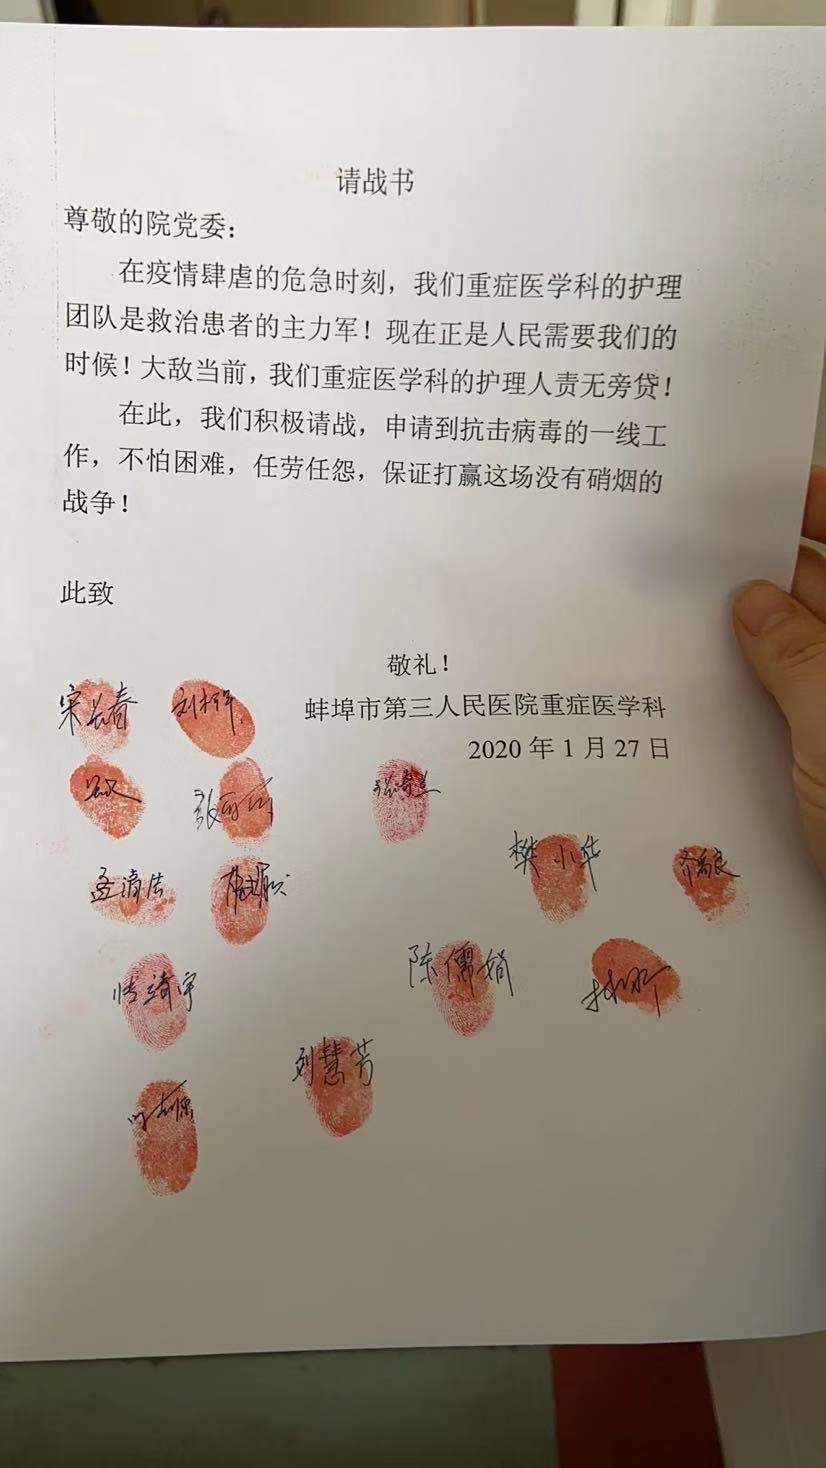 请战书
尊敬的院党委：
在疫情肆虐的危急时刻，我们重症医学科的护理
团队是救治患者的主力军！现在正是人民需要我们的
时候！大敌当前，我们重症医学科的护理人责无旁贷！
在此，我们积极请战，申请到抗击病毒的一线工
作，不怕困难，任劳任怨，保证打赢这场没有硝烟的
战争！
此致
敬礼！
蚌埠市第三人民医院重症医学科
2020 年 1 月 27 日
宋长春
樊小华
陈儒娟
刘慧芳